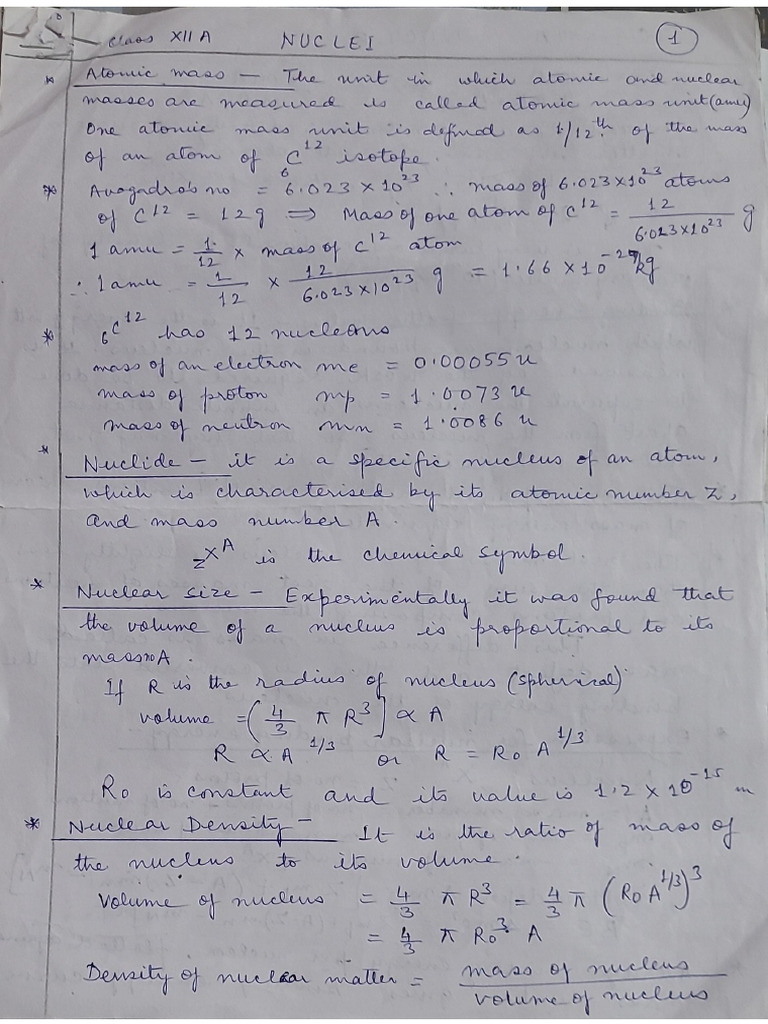 Class XII A NUCLEI 1
* Atomic mass — The unit in which atomic and nuclear
masses are measured is called atomic mass unit (amu)
One atomic mass unit is defined as 1/12th of the mass
of an atom of ₆C¹² isotope.
* Avogadro's no = 6.023 × 10²³ ∴ mass of 6.023×10²³ atoms
of C¹² = 12g ⇒ Mass of one atom of C¹² = 12/(6.023×10²³) g
1 amu = 1/12 × mass of C¹² atom
∴ 1 amu = 1/12 × 12/(6.023×10²³) g = 1.66 × 10⁻²⁷ kg
* ₆C¹² has 12 nucleons
mass of an electron me = 0.00055 u
mass of proton mp = 1.0073 u
mass of neutron mn = 1.0086 u
* Nuclide — it is a specific nucleus of an atom,
which is characterised by its atomic number Z,
and mass number A.
zXᴬ is the chemical symbol.
* Nuclear size — Experimentally it was found that
the volume of a nucleus is proportional to its
mass no A.
If R is the radius of nucleus (spherical)
volume = (4/3 π R³) ∝ A
R ∝ A^1/3 or R = R₀ A^1/3
R₀ is constant and its value is 1.2 × 10⁻¹⁵ m
* Nuclear Density — It is the ratio of mass of
the nucleus to its volume.
Volume of nucleus = 4/3 π R³ = 4/3 π (R₀ A^1/3)³
= 4/3 π R₀³ A
Density of nuclear matter = mass of nucleus / volume of nucleus